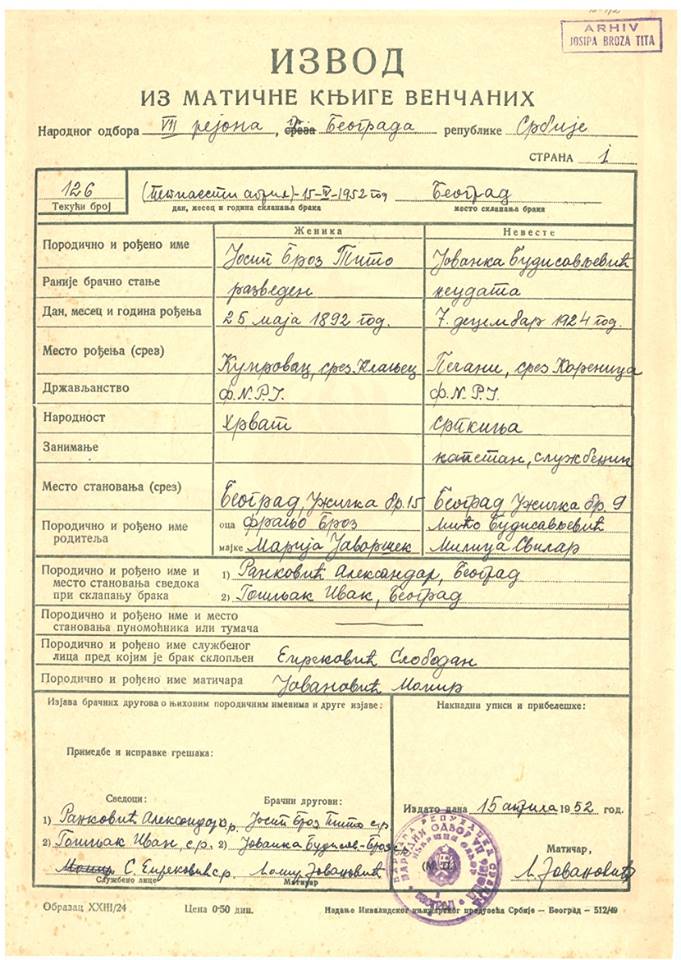 ARHIV
JOSIPA BROZA TITA
ИЗВОД
ИЗ МАТИЧНЕ КЊИГЕ ВЕНЧАНИХ
Народног одбора VII рејона, среза Београда републике Србије
СТРАНА 1
126 (петнаести април)-15-IV-1952 год Београд
Текући број дан, месец и година склапања брака место склапања брака
Женика Невесте
Породично и рођено име Јосип Броз Тито Јованка Будисављевић
Раније брачно стање разведен неудата
Дан, месец и година рођења 25 маја 1892 год. 7. децембар 1924 год.
Место рођења (срез) Кумровац, срез Клањец Пећани, срез Кореница
Држављанство Ф.Н.Р.Ј. Ф.Н.Р.Ј.
Народност Хрват Српкиња
Занимање капетан, службеник
Место становања (срез) Београд, Ужичка бр. 15 Београд Ужичка бр. 9
Породично и рођено име родитеља
оца Фрањо Броз Мићо Будисављевић
мајке Марија Јаваршек Милица Свилар
Породично и рођено име и
место становања сведока
при склапању брака
1) Ранковић Александар, Београд
2) Гошњак Иван, Београд
Породично и рођено име и место
становања пуномоћника или тумача
Породично и рођено име службеног
лица пред којим је брак склопљен Слободан
Породично и рођено име матичара Јовановић Момир
Изјава брачних другова о њиховим породичним именима и друге изјаве:
Накнадни уписи и прибелешке:
Примедбе и исправке грешака:
Сведоци: Брачни другови:
1) Ранковић Александар с.р. Јосип Броз Тито с.р.
2) Гошњак Иван, с.р. 2) Јованка Будисав-Броз с.р.
Момир С. с.р. Момир Јовановић
Службено лице Матичар
Издато дана 15 априла 1952 год.
(М. П.) Матичар,
М. Јовановић
Образац XXIII/24 Цена 0·50 дин. Издање Инвалидског књижарског предузећа Србије — Београд — 512/49